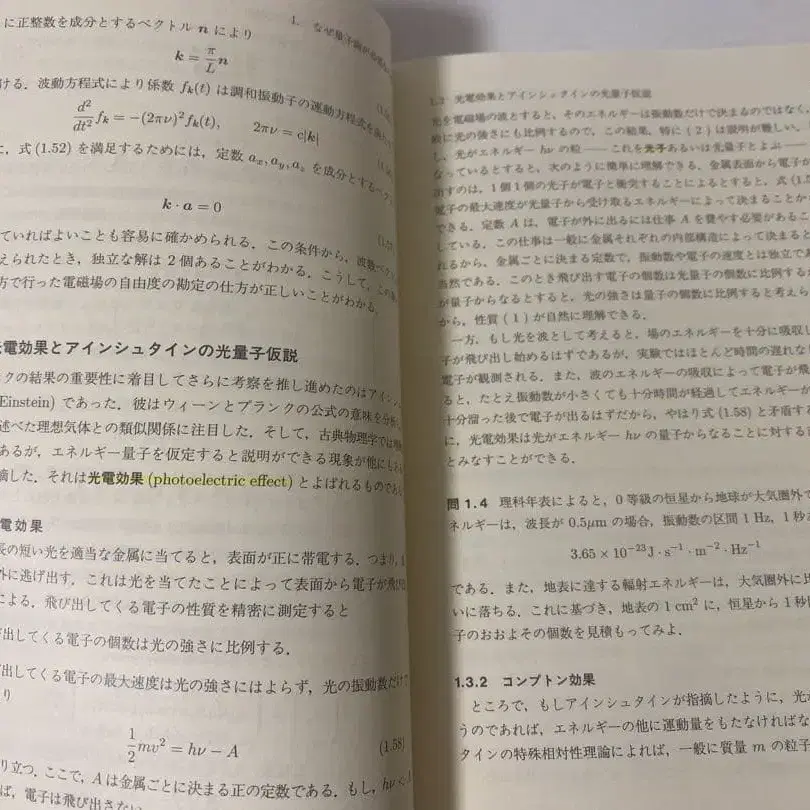 に正整数を成分とするベクトル n により
1. なぜ量子論が
k = π/L n
ける．波動方程式により係数 f_k(t) は調和振動子の運動方程式を
d²/dt² f_k = −(2πν)² f_k(t), 2πν = c|k|
に，式 (1.52) を満足するためには，定数 a_x, a_y, a_z を成分とするベク
k · a = 0
ていればよいことも容易に確かめられる．この条件から，波数ベク
えられたとき，独立な解は 2 個あることがわかる．こうして，この
方で行った電磁場の自由度の勘定の仕方が正しいことがわかる．
電効果とアインシュタインの光量子仮説
クの結果の重要性に着目してさらに考察を推し進めたのはアイン
Einstein) であった．彼はウィーンとプランクの公式の意味を分析
述べた理想気体との類似関係に注目した．そして，古典物理学では
あるが，エネルギー量子を仮定すると説明ができる現象が他にも
摘した．それは光電効果 (photoelectric effect) とよばれるものである
電効果
長の短い光を適当な金属に当てると，表面が正に帯電する．つまり，
外に逃げ出す．これは光を当てたことによって表面から電子が飛び
による．飛び出してくる電子の性質を精密に測定すると
び出してくる電子の個数は光の強さに比例する．
び出してくる電子の最大速度は光の強さにはよらず，光の振動数だけで
り
1/2 mv² = hν − A (1.58)
り立つ．ここで，A は金属ごとに決まる正の定数である．もし，hν <
ば，電子は飛び出さない．
1.3 光電効果とアインシュタインの光量子仮説
光を電磁場の波とすると，そのエネルギーは振動数だけで決まるのではなく，
般に光の強さにも比例するので，この結果，特に (2) は説明が難しい．
し，光がエネルギー hν の粒——これを光子あるいは光量子とよぶ——
なっているとすると，次のように簡単に理解できる．金属表面から電子が
出すのは，1 個 1 個の光子が電子と衝突することによるとすると，式 (1.5
電子の最大速度が光量子から受け取るエネルギーによって決まることか
できる．定数 A は，電子が外に出るには仕事 A を費やす必要があるこ
している．この仕事は一般に金属それぞれの内部構造によって決まると
れるから，金属ごとに決まる定数で，振動数や電子の速度とは独立で
当然である．このとき飛び出す電子の個数は光量子の個数に比例するが
が量子からなるとすると，光の強さは量子の個数に比例すると考えら
から，性質 (1) が自然に理解できる．
一方，もし光を波として考えると，場のエネルギーを十分に吸収し
子が飛び出し始めるはずであるが，実験ではほとんど時間の遅れな
電子が観測される．また，波のエネルギーの吸収によって電子が飛
ると，たとえ振動数が小さくても十分時間が経過してエネルギーが
十分溜った後で電子が出るはずだから，やはり式 (1.58) と矛盾す
に，光電効果は光がエネルギー hν の量子からなることに対する直
とみなすことができる．
問 1.4 理科年表によると，0 等級の恒星から地球が大気圏外で
ネルギーは，波長が 0.5μm の場合，振動数の区間 1 Hz，1 秒
3.65 × 10⁻²³ J · s⁻¹ · m⁻² · Hz⁻¹
である．また，地表に達する輻射エネルギーは，大気圏外に比
いに落ちる．これに基づき，地表の 1 cm² に，恒星から 1 秒間
子のおおよその個数を見積もってみよ．
1.3.2 コンプトン効果
ところで，もしアインシュタインが指摘したように，光が
うのであれば，エネルギーの他に運動量をもたなければな
タインの特殊相対性理論によれば，一般に質量 m の粒子